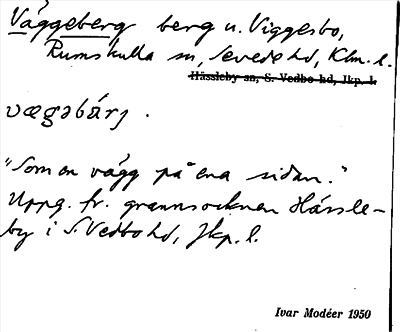 Väggeberg berg u. Viggesbo,
Rumskulla sn, Sevede hd, Klm. l.
Hässleby sn, S. Vedbo hd, Jkp. l.
vægəbárj .
"Som en vägg på ena sidan."
Uppg. fr. grannsocknen Hässle-
by i S. Vedbo hd, Jkp. l.
Ivar Modéer 1950